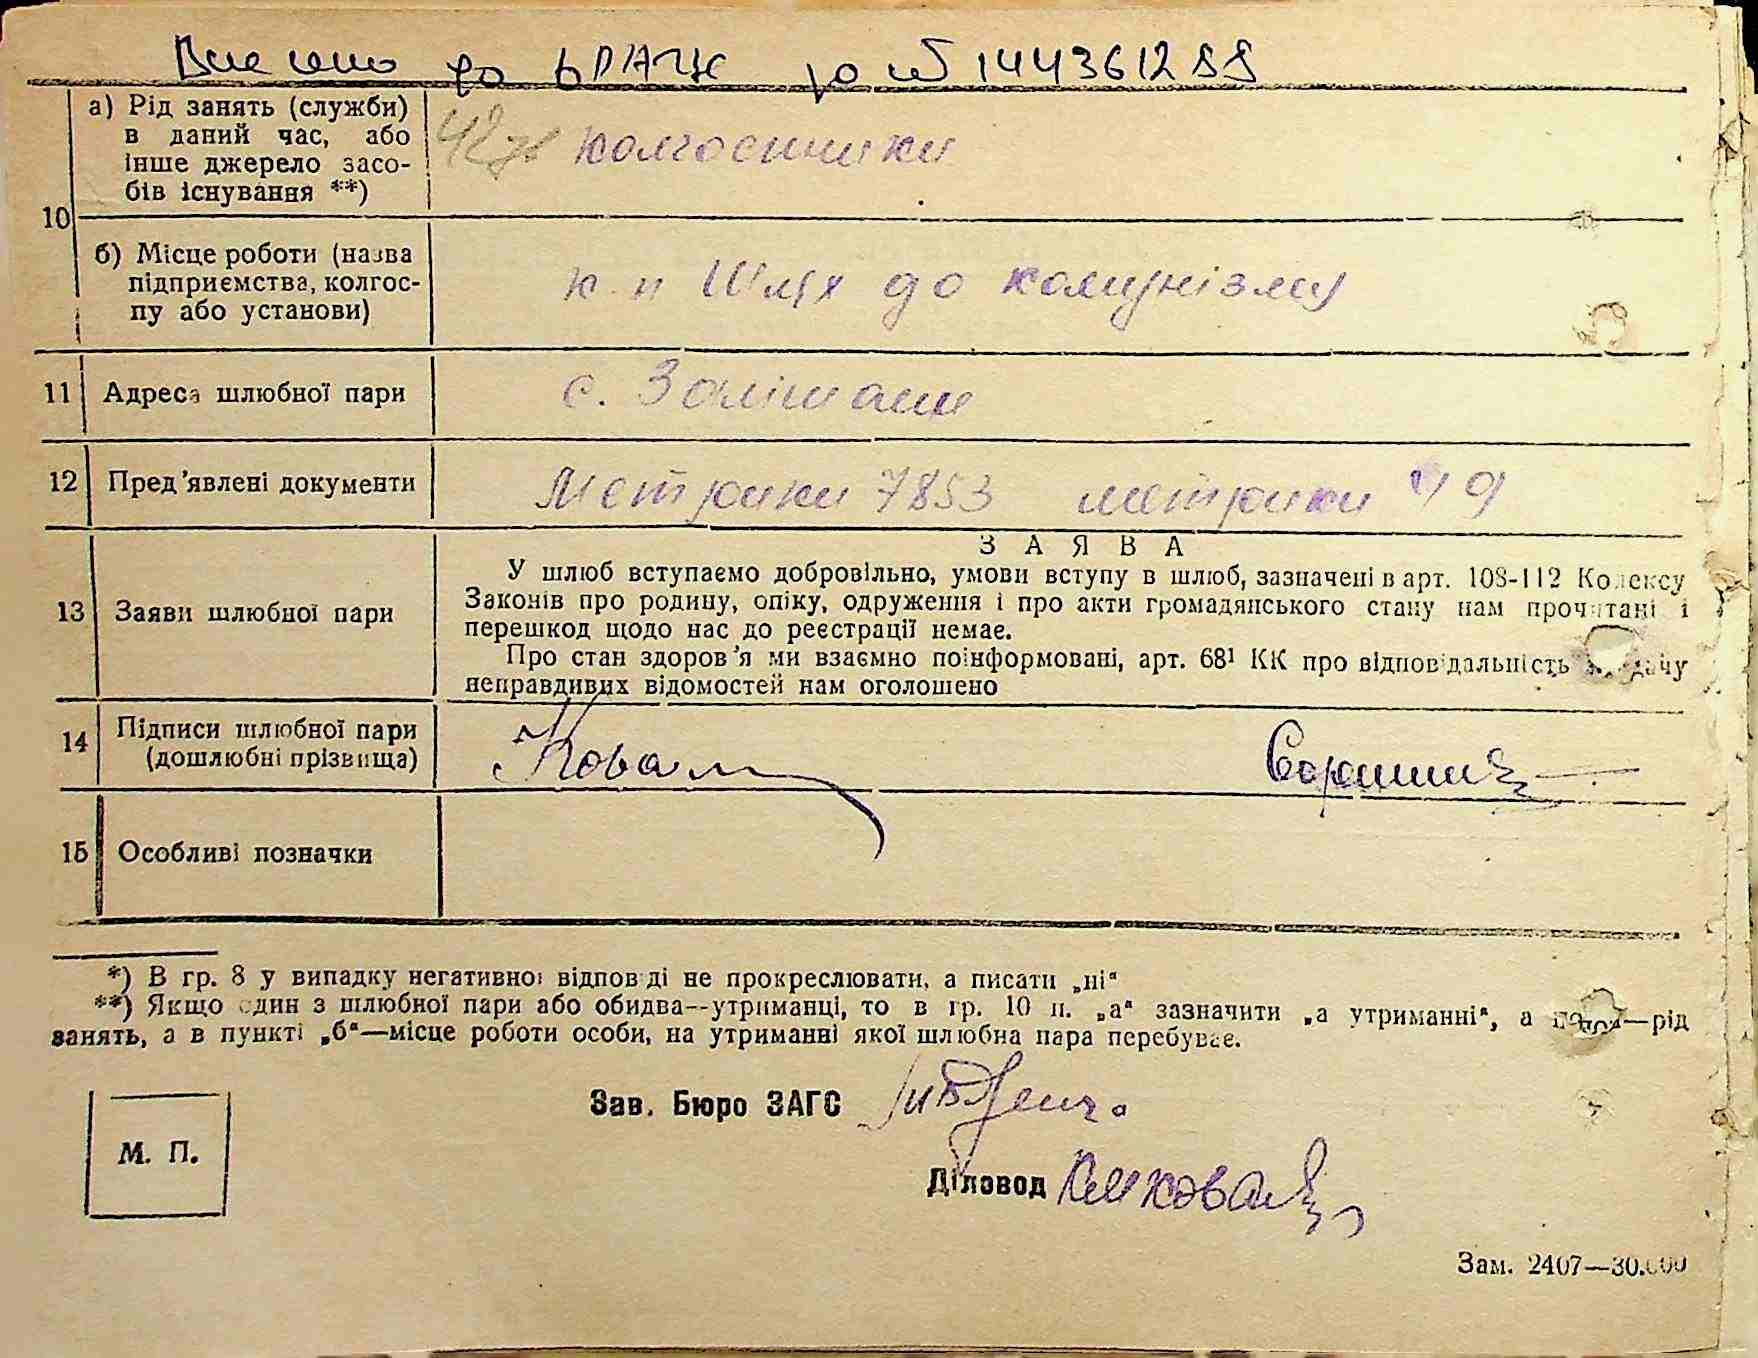 Внесено до ДРАЦС за № 1443612
10
а) Рід занять (служби)
в даний час, або
інше джерело засо-
бів існування **)
колгоспники
б) Місце роботи (назва
підприємства, колгос-
пу або установи)
к-п Шлях до комунізму
11 Адреса шлюбної пари
с.
12 Пред'явлені документи
Метрики 7853 метрики
ЗАЯВА
13 Заяви шлюбної пари
У шлюб вступаємо добровільно, умови вступу в шлюб, зазначені в арт. 108-112 Кодексу
Законів про родину, опіку, одруження і про акти громадянського стану нам прочитані і
перешкод щодо нас до реєстрації немає.
Про стан здоров'я ми взаємно поінформовані, арт. 68¹ КК про відповідальність за дачу
неправдивих відомостей нам оголошено
14 Підписи шлюбної пари
(дошлюбні прізвища)
Коваль
15 Особливі позначки
*) В гр. 8 у випадку негативної відповіді не прокреслювати, а писати „ні“
**) Якщо один з шлюбної пари або обидва--утриманці, то в гр. 10 п. „а“ зазначити „а утриманні“, а
—рід
занять, а в пункті „б“—місце роботи особи, на утриманні якої шлюбна пара перебуває.
Зав. Бюро ЗАГС
М. П.
Діловод
Зам. 2407—30.000